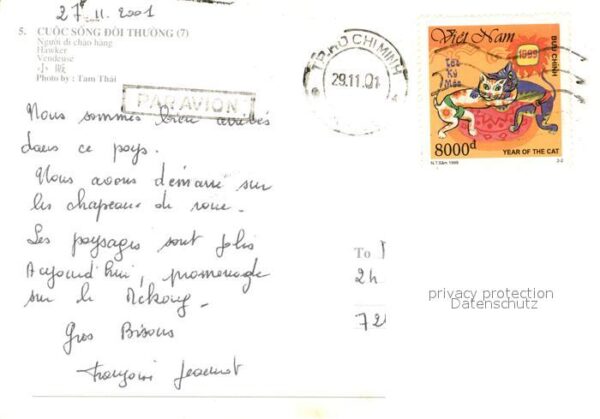 27.11.2001
5. CUỘC SỐNG ĐỜI THƯỜNG (7)
Người đi chào hàng
Hawker
Vendeuse
小 販
Photo by : Tam Thái
PAR AVION
TP. HỒ CHÍ MINH
29.11.01
Việt Nam
1999
BƯU CHÍNH
Tết Kỷ Mão
8000đ
YEAR OF THE CAT
2-2
Nous sommes bien arrivés
dans ce pays.
Nous avons démarré sur
les chapeaux de roue.
Les paysages sont jolis
Aujourd'hui, promenade
sur le Mékong.
Gros Bisous
To
2h
72
privacy protection
Datenschutz